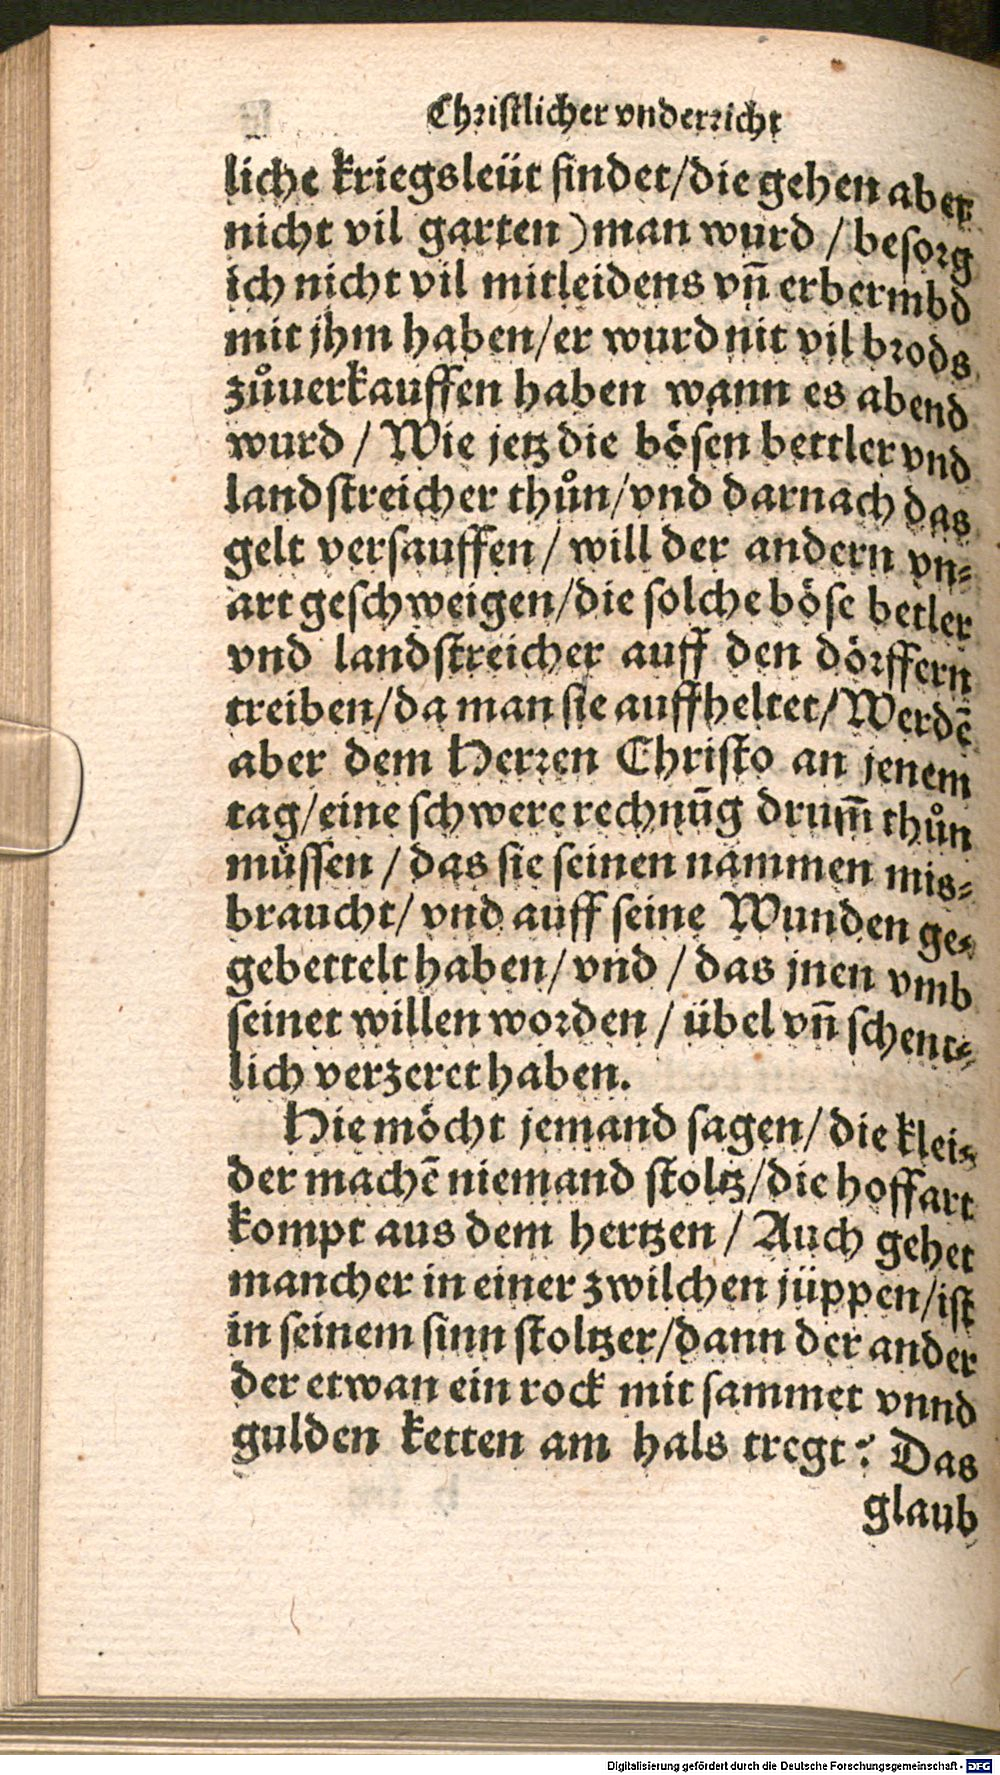 Christlicher vnderricht
liche kriegsleüt findet/die gehen aber
nicht vil garten) man wurd / besorg
ich nicht vil mitleidens vn̄ erbermbd
mit jhm haben/er wurd nit vil brods
zůuerkauffen haben wann es abend
wurd / Wie jetz die bösen bettler vnd
landstreicher thůn/vnd darnach das
gelt versauffen / will der andern vn⸗
art geschweigen/die solche böse betler
vnd landstreicher auff den dörffern
treiben/da man sie auffheltet/Werdē
aber dem Herren Christo an jenem
tag/eine schwere rechnūg drum̄ thůn
müssen / das sie seinen nammen mis⸗
braucht/ vnd auff seine Wunden ge⸗
gebettelt haben/ vnd / das jnen vmb
seinet willen worden / übel vn̄ schent⸗
lich verzeret haben.
Hie möcht jemand sagen/ die klei⸗
der machē niemand stoltz/die hoffart
kompt aus dem hertzen / Auch gehet
mancher in einer zwilchen jüppen/ist
in seinem sinn stoltzer/dann der ander
der etwan ein rock mit sammet vnnd
gulden ketten am hals tregt? Das
glaub
Digitalisierung gefördert durch die Deutsche Forschungsgemeinschaft - DFG